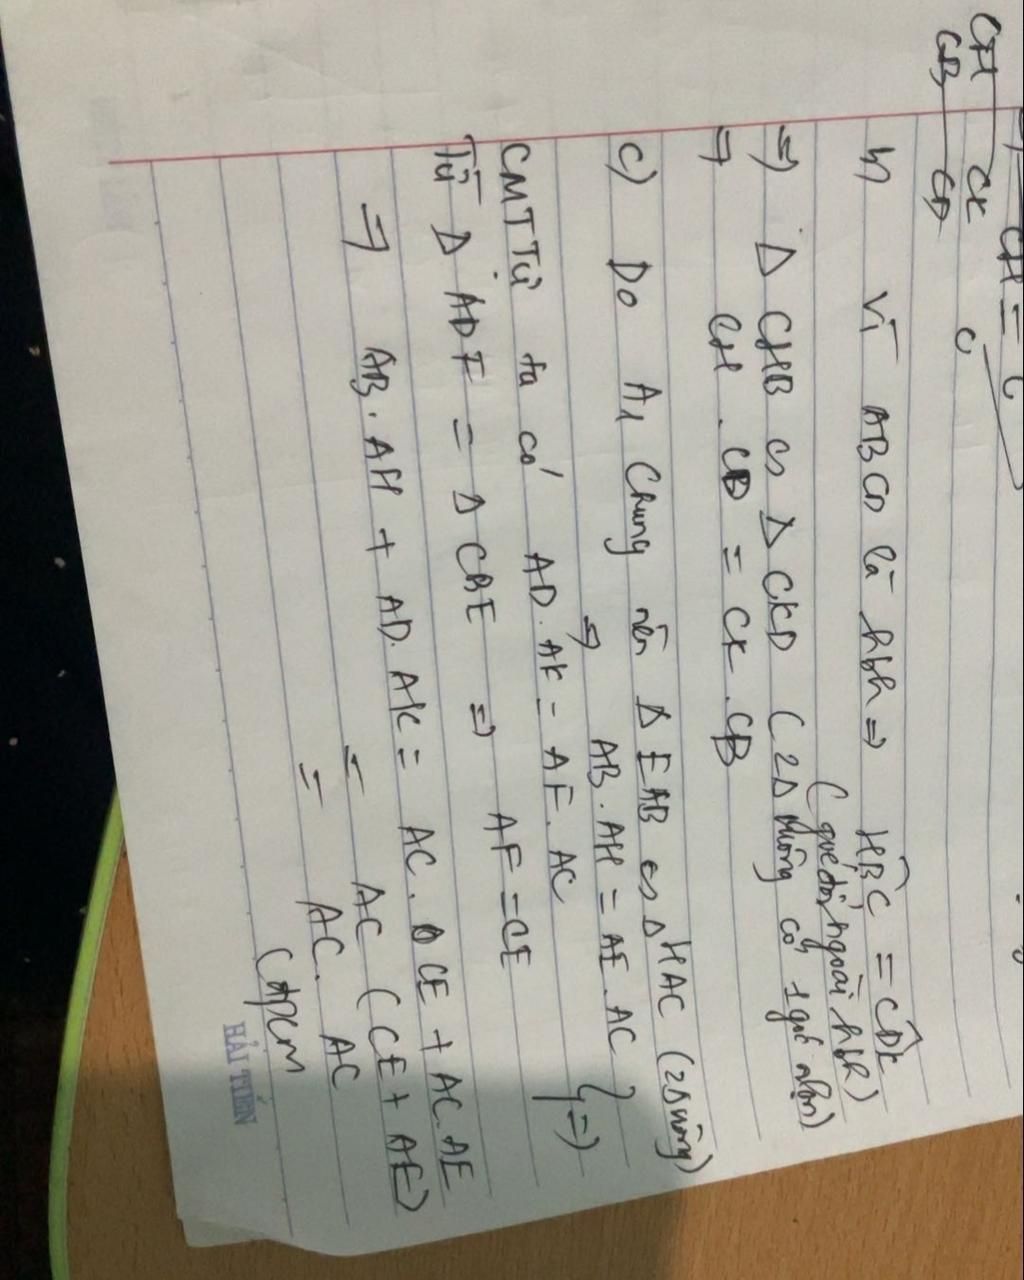 CH = C
CH CK
CB CD
C
b) Vì ABCD là hbh => HBC = CDK
( góc đối ngoài hbh)
=> Δ CHB ∽ Δ CKD ( 2Δ vuông có 1 góc nhọn)
=> CH . CD = CK . CB
c) Do A1 chung nên Δ EAB ∽ Δ HAC (2Δ vuông)
=> AB . AH = AE . AC } =>
CMT Tự ta có AD . AK = AF . AC
Từ Δ ADF = Δ CBE => AF = CE
=> AB . AH + AD . AK = AC . CE + AC . AE
= AC ( CE + AE)
= AC . AC
(đpcm
HẢI TIẾN